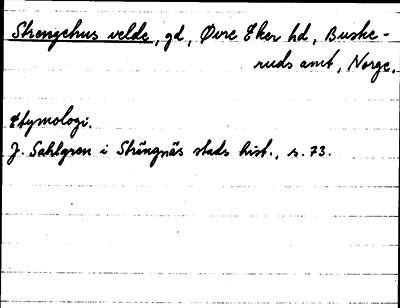 Strengehus velde, gd, Øvre Eker hd, Buske-
ruds amt, Norge.
Etymologi.
J. Sahlgren i Strängnäs stads hist., s. 73.